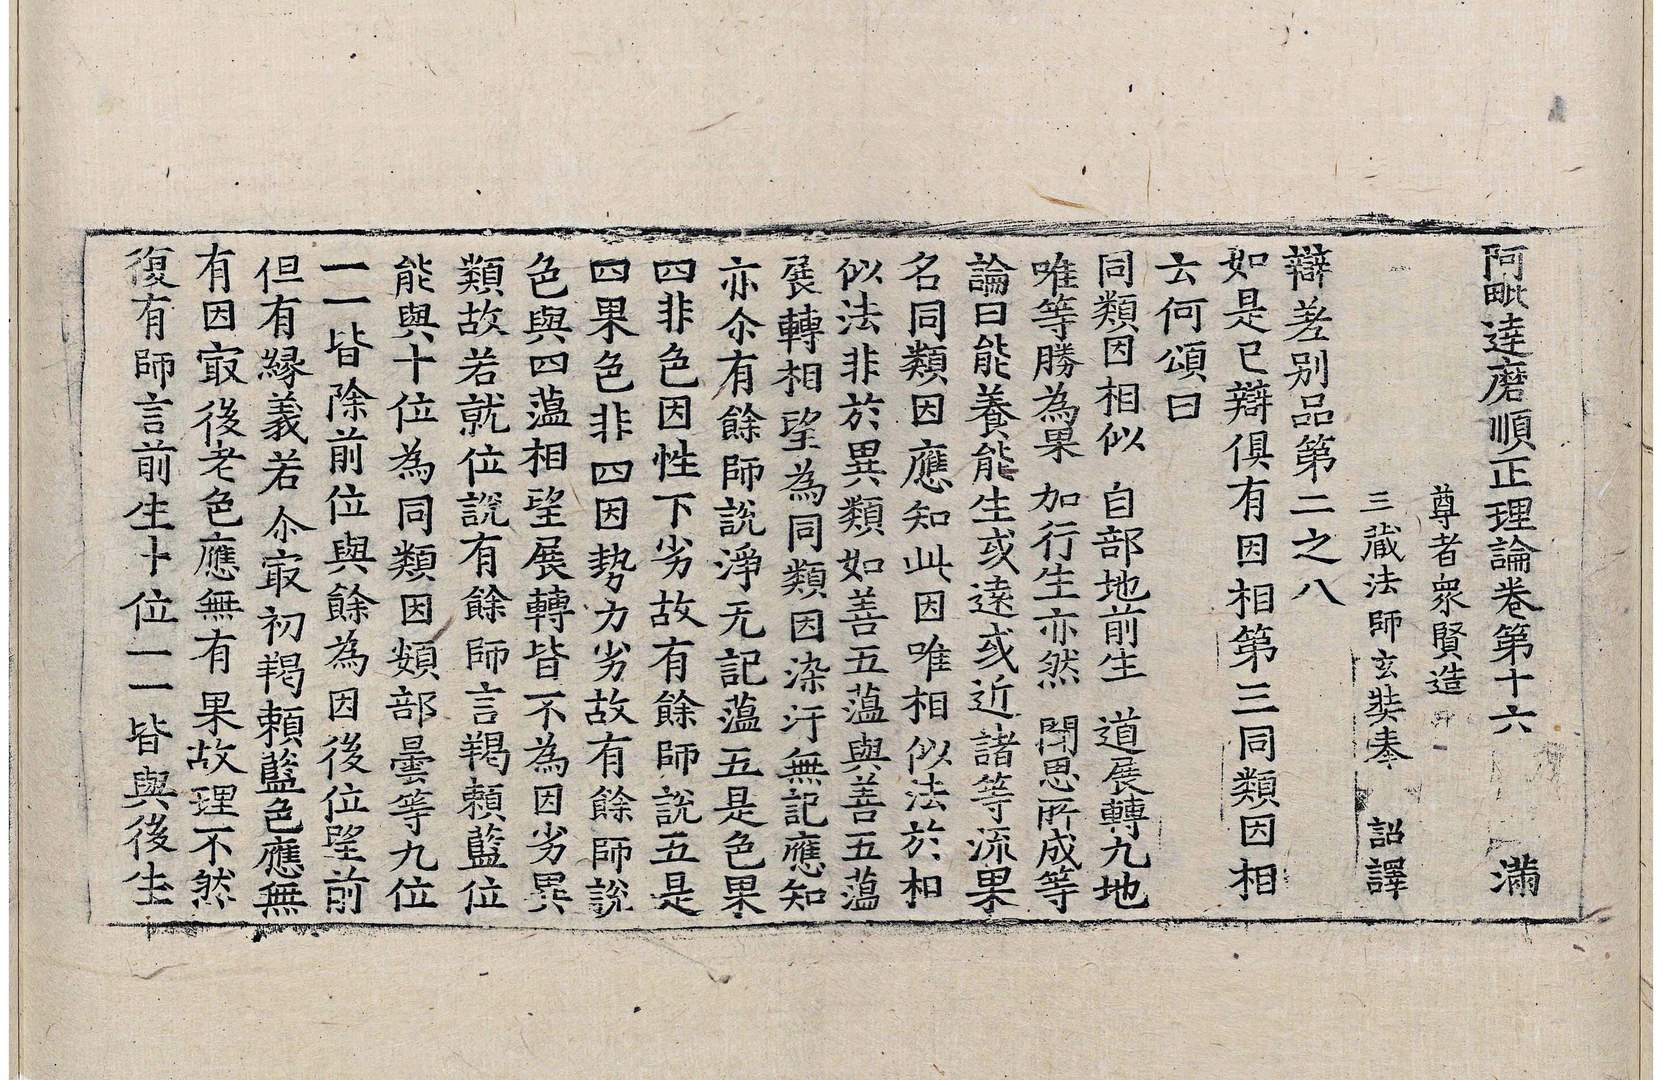 阿毗達磨順正理論卷第十六 滿
尊者衆賢造
三藏法師玄奘奉 詔譯
辯差別品第二之八
如是已辯俱有因相第三同類因相
云何頌曰
同類因相似 自部地前生 道展轉九地
唯等勝為果 加行生亦然 聞思所成等
論曰能養能生或遠或近諸等流果
名同類因應知此因唯相似法於相
似法非於異類如善五蕰與善五蕰
展轉相望為同類因染汙無記應知
亦尒有餘師說淨无記蕰五是色果
四非色因性下劣故有餘師說五是
四果色非四因勢力劣故有餘師說
色與四蕰相望展轉皆不為因劣異
類故若就位說有餘師言羯賴藍位
能與十位為同類因頞部曇等九位
一一皆除前位與餘為因後位望前
但有緣義若尒㝡初羯賴藍色應無
有因㝡後老色應無有果故理不然
復有師言前生十位一一皆與後生